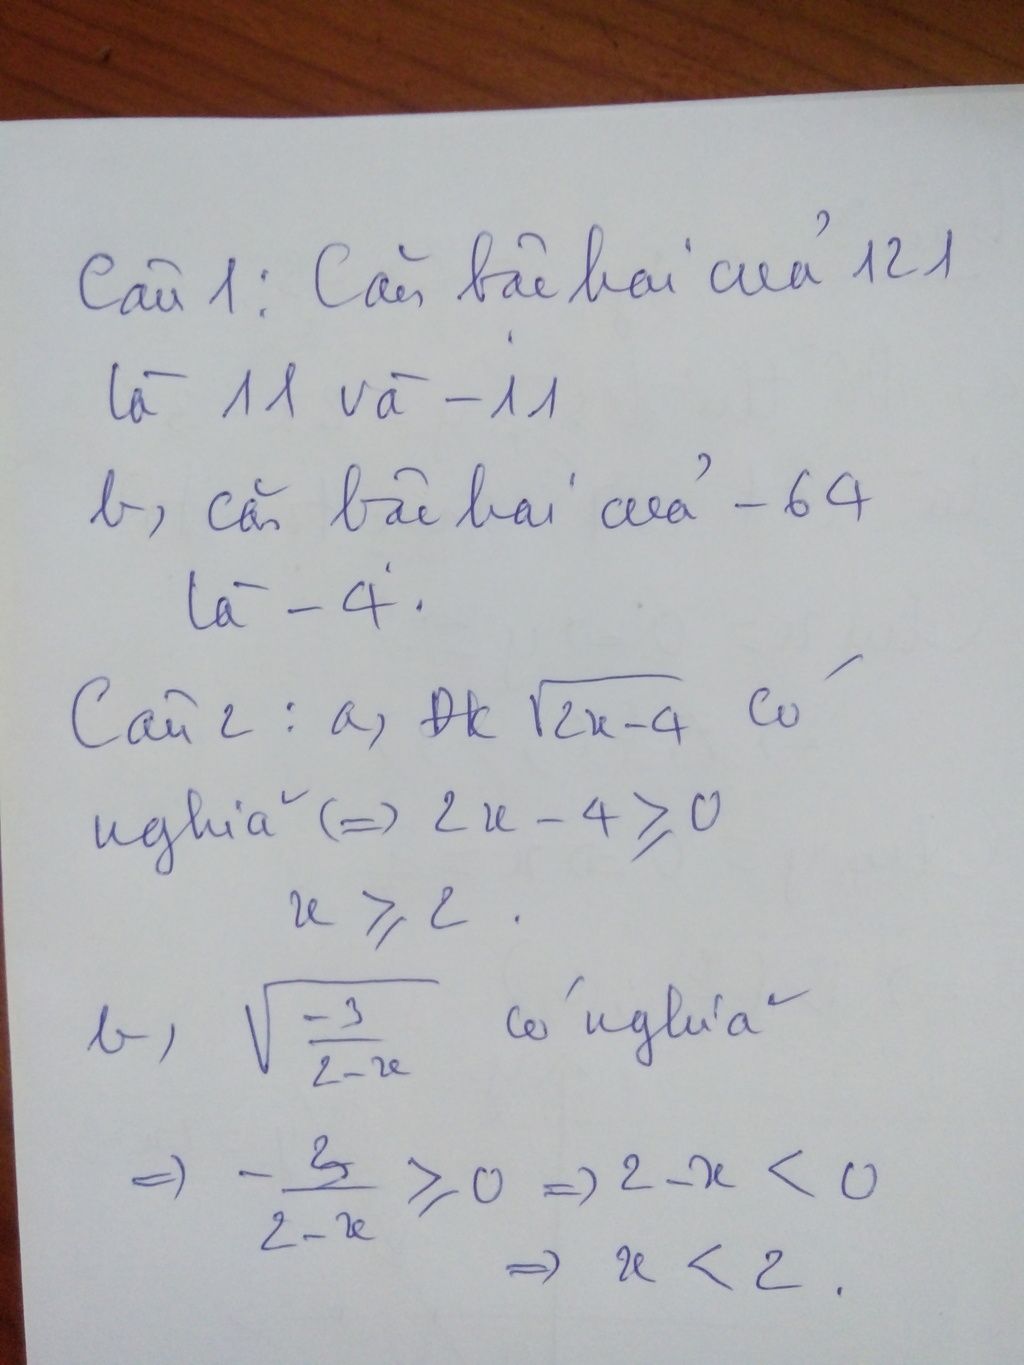 Câu 1: Căn bậc hai của 121
là 11 và -11
b, căn bậc hai của -64
là -4.
Câu 2: a, ĐK √(2x-4) có
nghĩa (=> 2x - 4 ≥ 0
x ≥ 2.
b, √(-3/(2-x)) có nghĩa
=> -3/(2-x) ≥ 0 => 2-x < 0
=> x < 2.